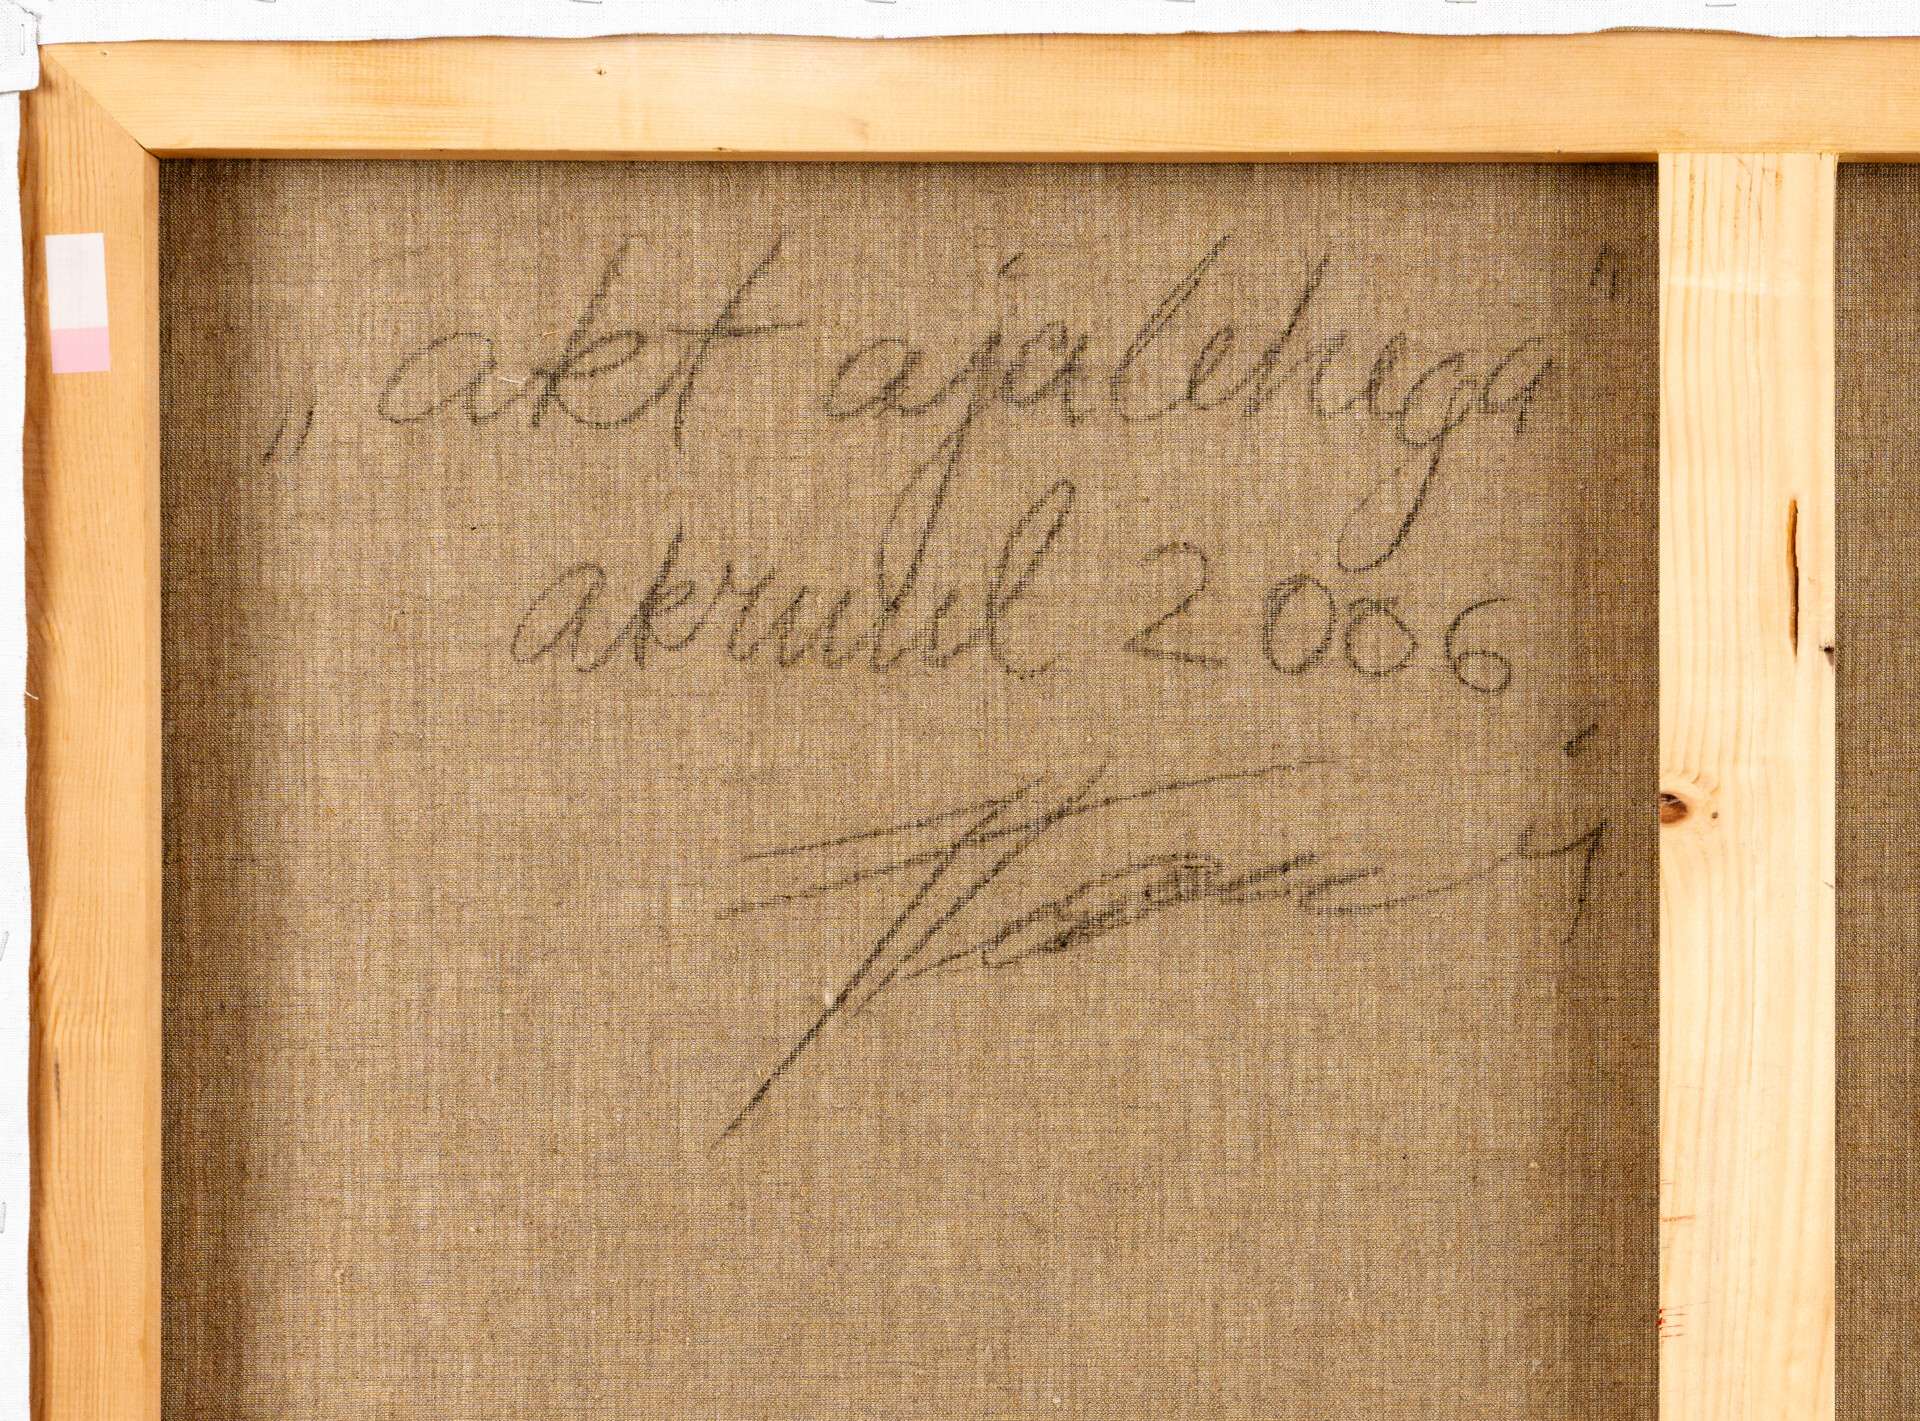 „akt ajalehega"
akrüül 2006